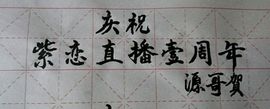 庆祝
紫恋直播壹周年
源哥贺